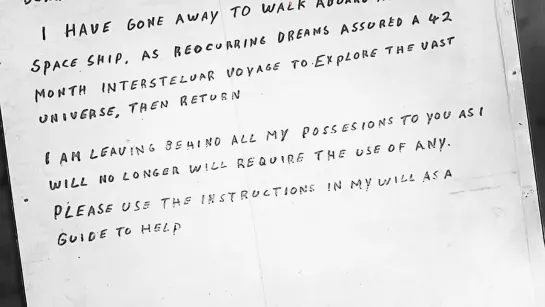 I HAVE GONE AWAY TO WALK ABOARD
SPACE SHIP, AS REOCURRING DREAMS ASSURED A 42
MONTH INTERSTELLAR VOYAGE TO EXPLORE THE VAST
UNIVERSE, THEN RETURN
I AM LEAVING BEHIND ALL MY POSSESIONS TO YOU AS I
WILL NO LONGER WILL REQUIRE THE USE OF ANY.
PLEASE USE THE INSTRUCTIONS IN MY WILL AS A
GUIDE TO HELP